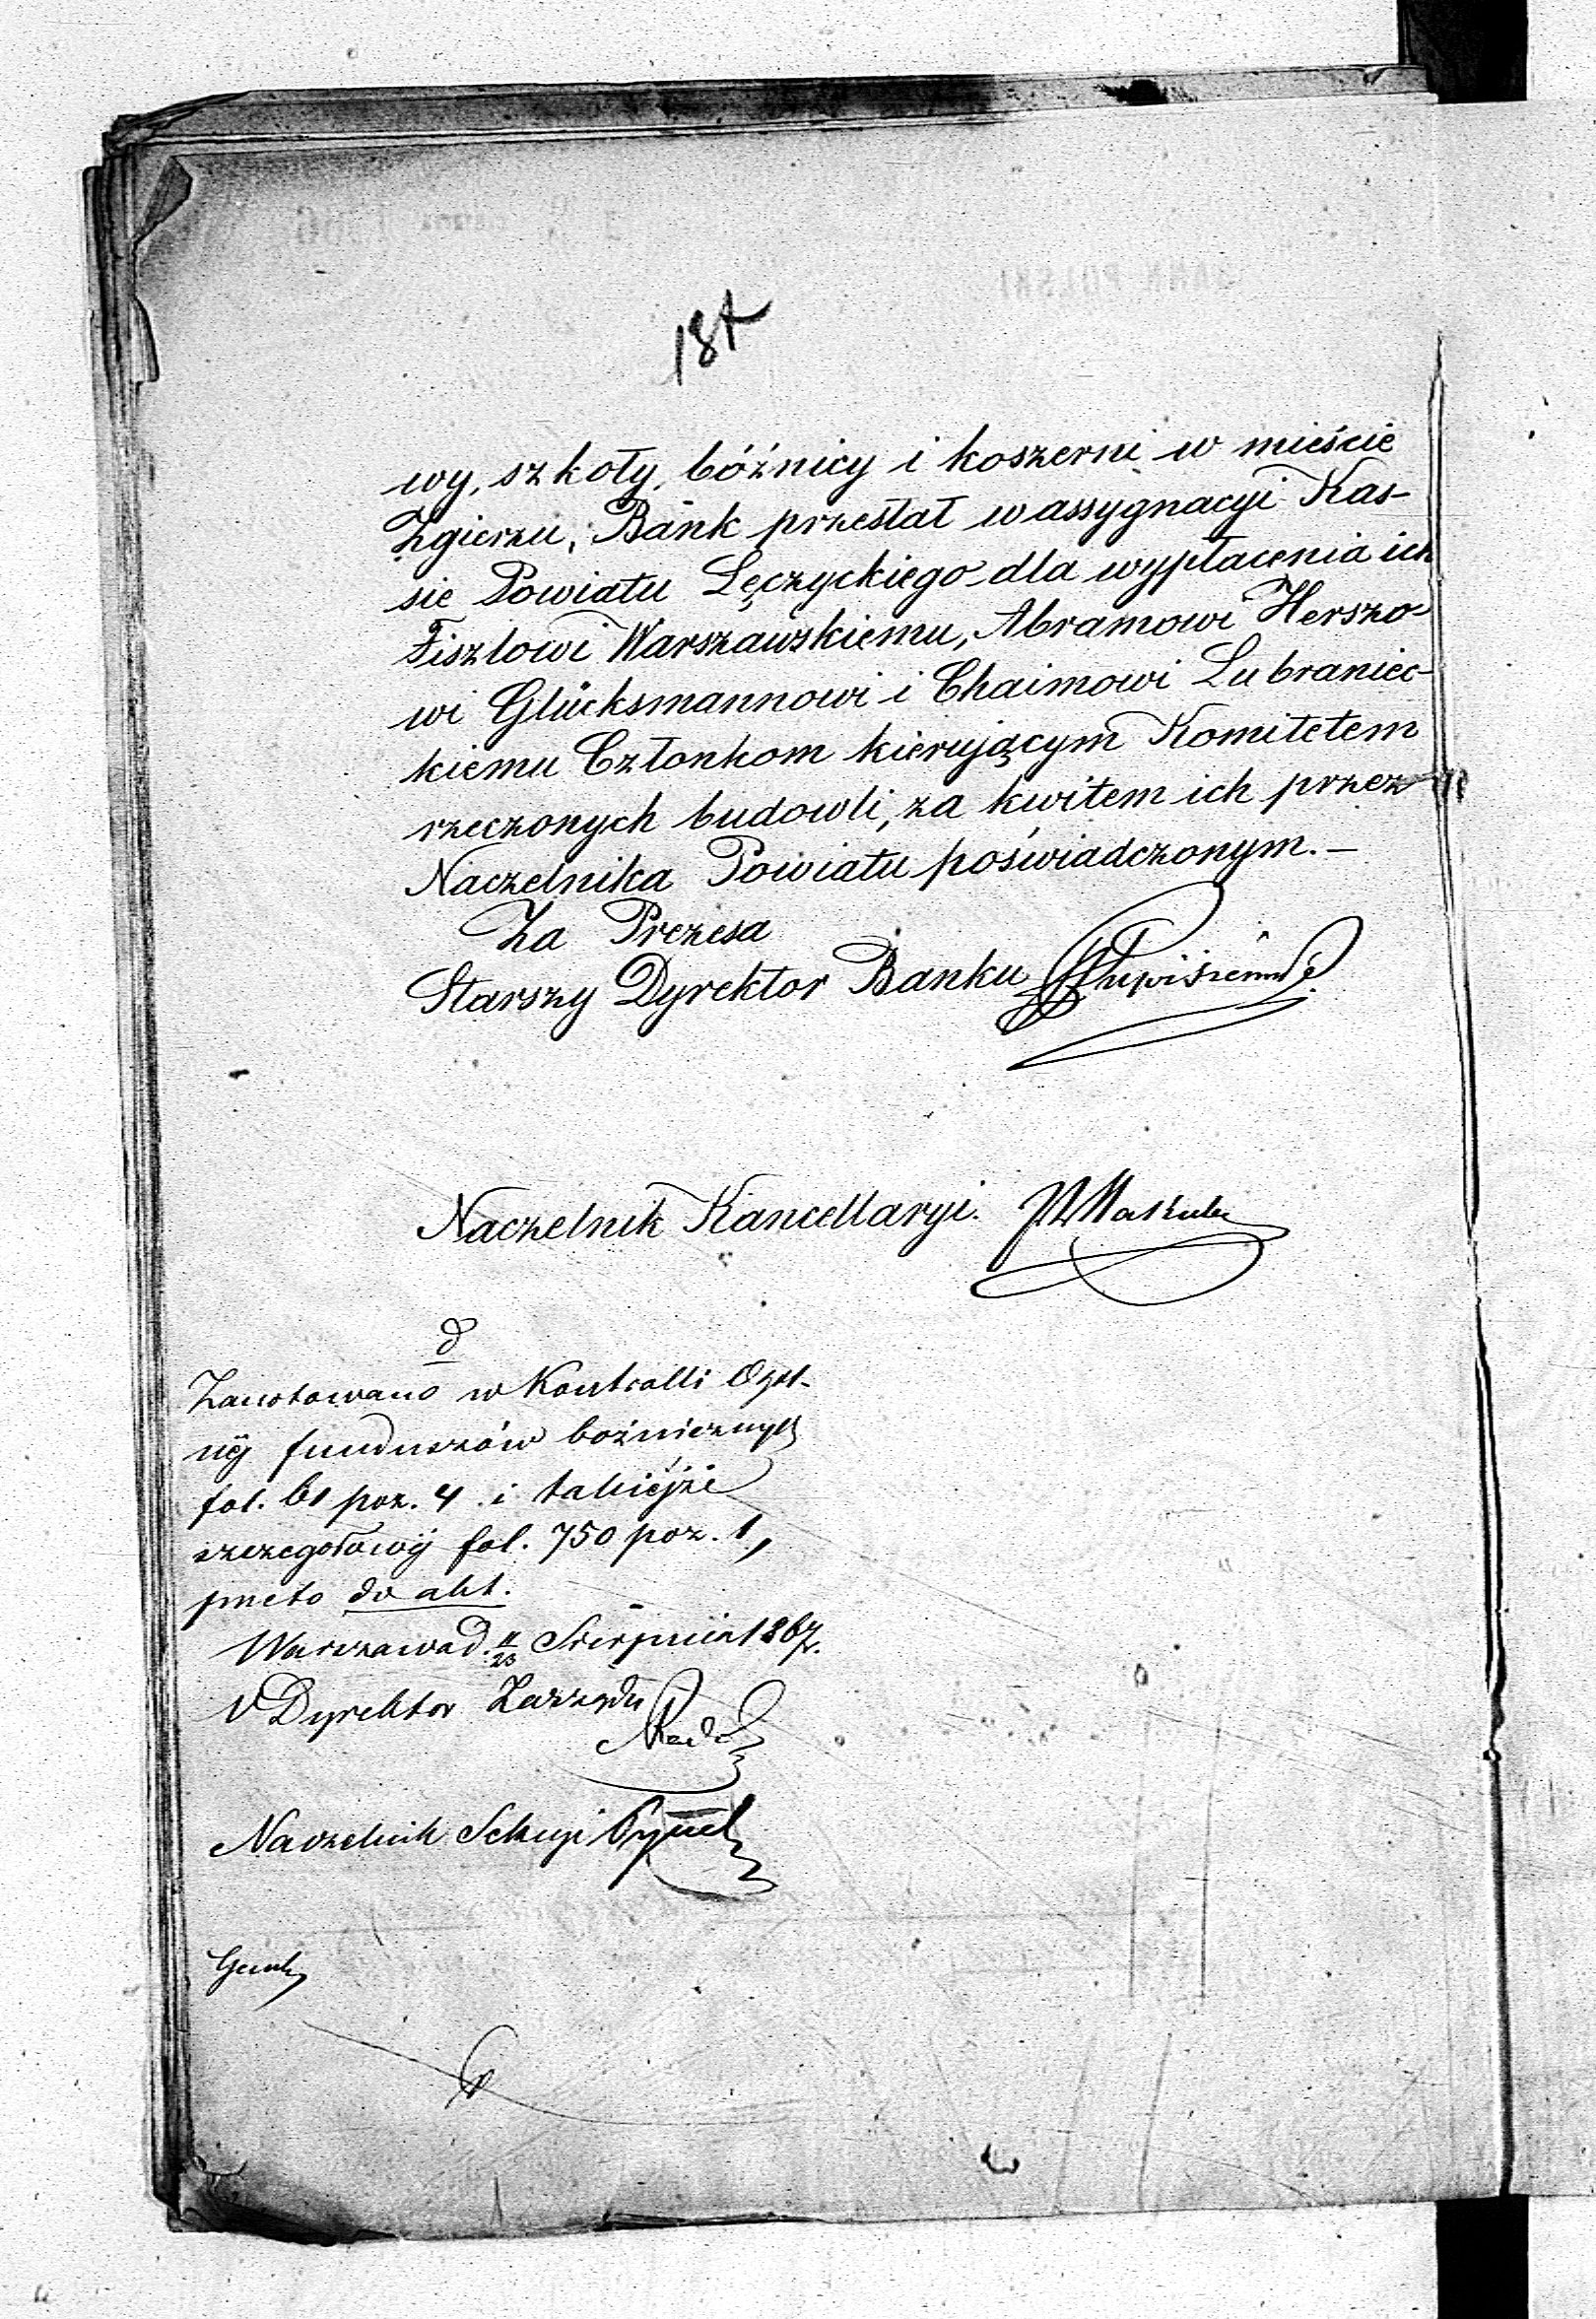 wy, szkoły, bóźnicy i koszerni w mieście
Zgierzu, Bank przesłał w assygnacyi Kas-
sie Powiatu Łęczyckiego dla wypłacenia ich
Fiszlowi Warszawskiemu, Abramowi Herszo-
wi Glücksmannowi i Chaimowi Lubraniec-
kiemu Członkom kierującym Komitetem
rzeczonych budowli, za kwitem ich przez
Naczelnika Powiatu poświadczonym.—
Za Prezesa
Starszy Dyrektor Banku
Naczelnik Kancellaryi.
d
Zanotowano w Kontrolli Ogól-
nej funduszów bożnicznych
fol. 61 poz. 4 i takiejże
szczegołowej fol. 750 poz. 1,
przeto do akt.
Warszawa d. 11/23 Sierpnia 1867.
V Dyrektor Zarządu
Naczelnik Sekcyi